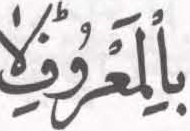 بِالْمَعْرُوْفِؕ لَا